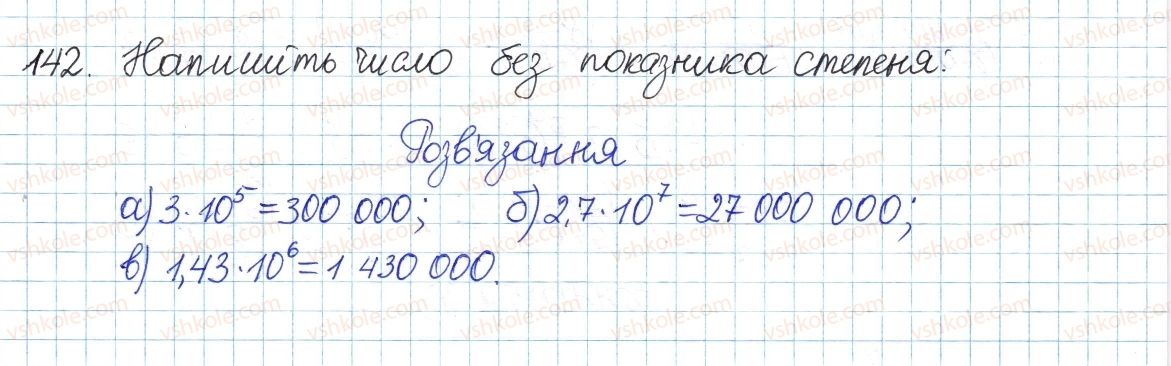 142. Напишіть число без показника степеня:
Розв'язання
а) 3·10⁵=300 000; б) 2,7·10⁷=27 000 000;
в) 1,43·10⁶=1 430 000.